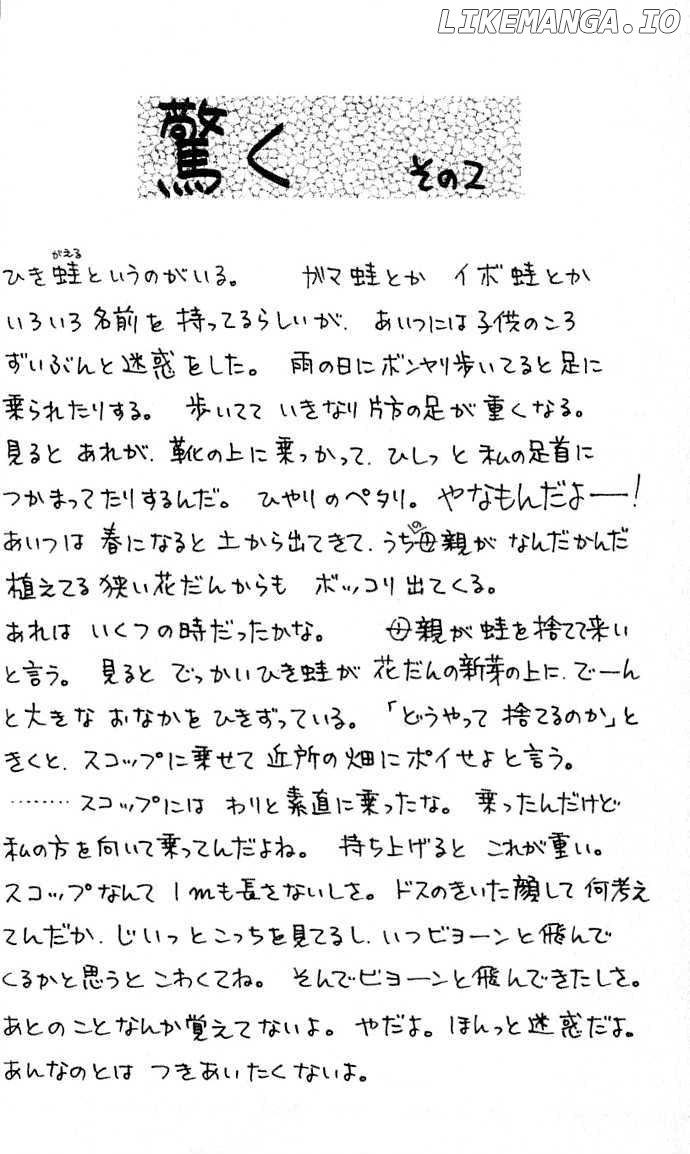 LIKEMANGA.IO
驚く その2
ひき蛙というのがいる。 ガマ蛙とか イボ蛙とか
いろいろ名前を持ってるらしいが、あいつには子供のころ
ずいぶんと迷惑をした。 雨の日にボンヤリ歩いてると足に
乗られたりする。 歩いてて いきなり片方の足が重くなる。
見ると あれが、靴の上に乗っかって、ひしっと 私の足首に
つかまってたりするんだ。 ひやりのペタリ。やなもんだよー!
あいつは 春になると 土から出てきて、うちの母親が なんだかんだ
植えてる狭い花だんからも ボッコリ出てくる。
あれは いくつの時だったかな。 母親が蛙を捨てて来い
と言う。 見ると でっかいひき蛙が 花だんの新芽の上に、でーん
と大きな おなかを ひきずっている。 「どうやって 捨てるのか」と
きくと、スコップに乗せて 近所の畑にポイせよと言う。
………スコップには わりと素直に乗ったな。 乗ったんだけど
私の方を向いて乗ってんだよね。 持ち上げると これが重い。
スコップなんて 1mも長さないしさ。ドスのきいた顔して何考え
てんだか、じいっとこっちを見てるし、いつビヨーンと飛んで
くるかと思うと こわくてね。 そんでビヨーンと飛んできたしさ。
あとのことなんか覚えてないよ。 やだよ。ほんっと迷惑だよ。
あんなのとは つきあいたくないよ。